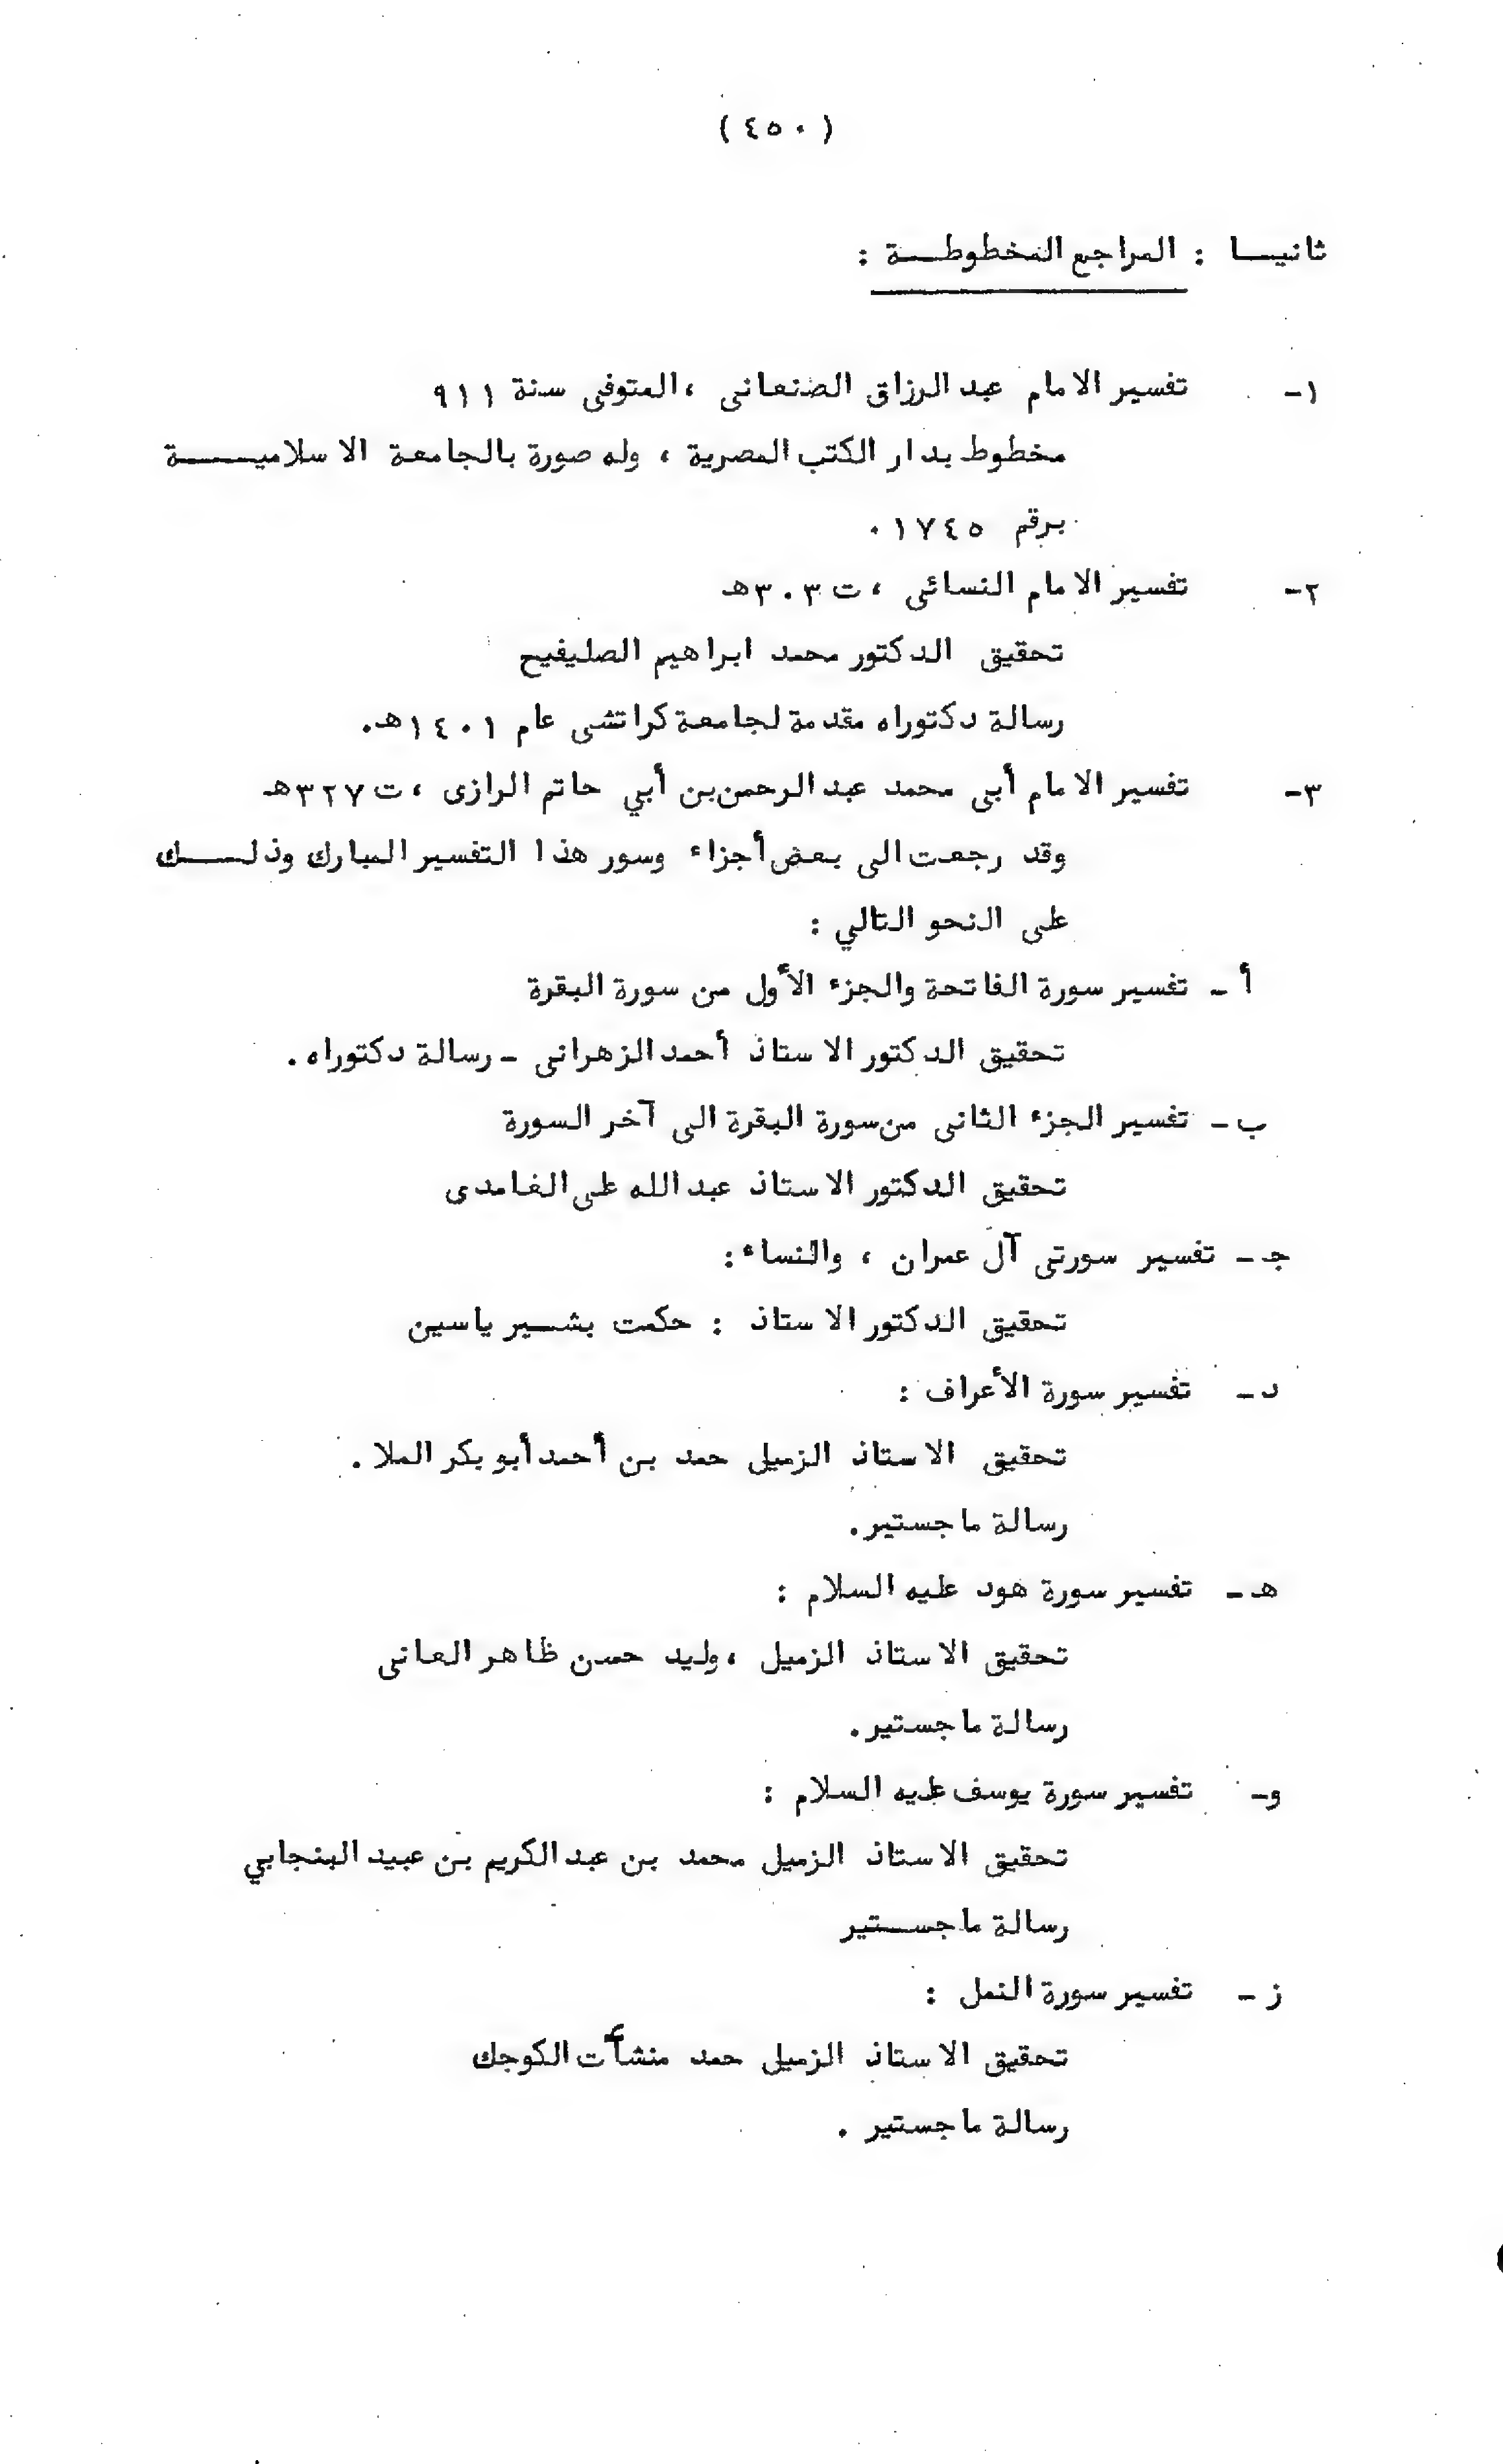 ( ٤٥٠ )
ثانيا : المراجع المخطوطة :
١- تفسير الامام عبد الرزاق الصنعانى ، المتوفى سنة ٩١١
مخطوط بدار الكتب المصرية ، وله صورة بالجامعة الاسلامية
برقم ١٧٤٥ .
٢- تفسير الامام النسائى ، ت ٣٠٣هـ
تحقيق الدكتور محمد ابراهيم الصليفيح
رسالة دكتوراه مقدمة لجامعة كراتشى عام ١٤٠١هـ.
٣- تفسير الامام أبى محمد عبد الرحمن بن أبي حاتم الرازى ، ت ٣٢٧هـ
وقد رجعت الى بعض أجزاء وسور هذا التفسير المبارك وذلك
على النحو التالي :
أ ـ تفسير سورة الفاتحة والجزء الأول من سورة البقرة
تحقيق الدكتور الاستاذ أحمد الزهرانى ـ رسالة دكتوراه .
ب ـ تفسير الجزء الثانى من سورة البقرة الى آخر السورة
تحقيق الدكتور الاستاذ عبد الله على الغامدى
جـ ـ تفسير سورتى آل عمران ، والنساء :
تحقيق الدكتور الاستاذ : حكمت بشير ياسين
د ـ تفسير سورة الأعراف :
تحقيق الاستاذ الزميل حمد بن أحمد أبو بكر الملا .
رسالة ماجستير .
هـ ـ تفسير سورة هود عليه السلام :
تحقيق الاستاذ الزميل ، وليد حسن ظاهر العانى
رسالة ماجستير .
و ـ تفسير سورة يوسف عليه السلام :
تحقيق الاستاذ الزميل محمد بن عبد الكريم بن عبيد البنجابي
رسالة ماجستير
ز ـ تفسير سورة النمل :
تحقيق الاستاذ الزميل حمد منشأت الكوجك
رسالة ماجستير .